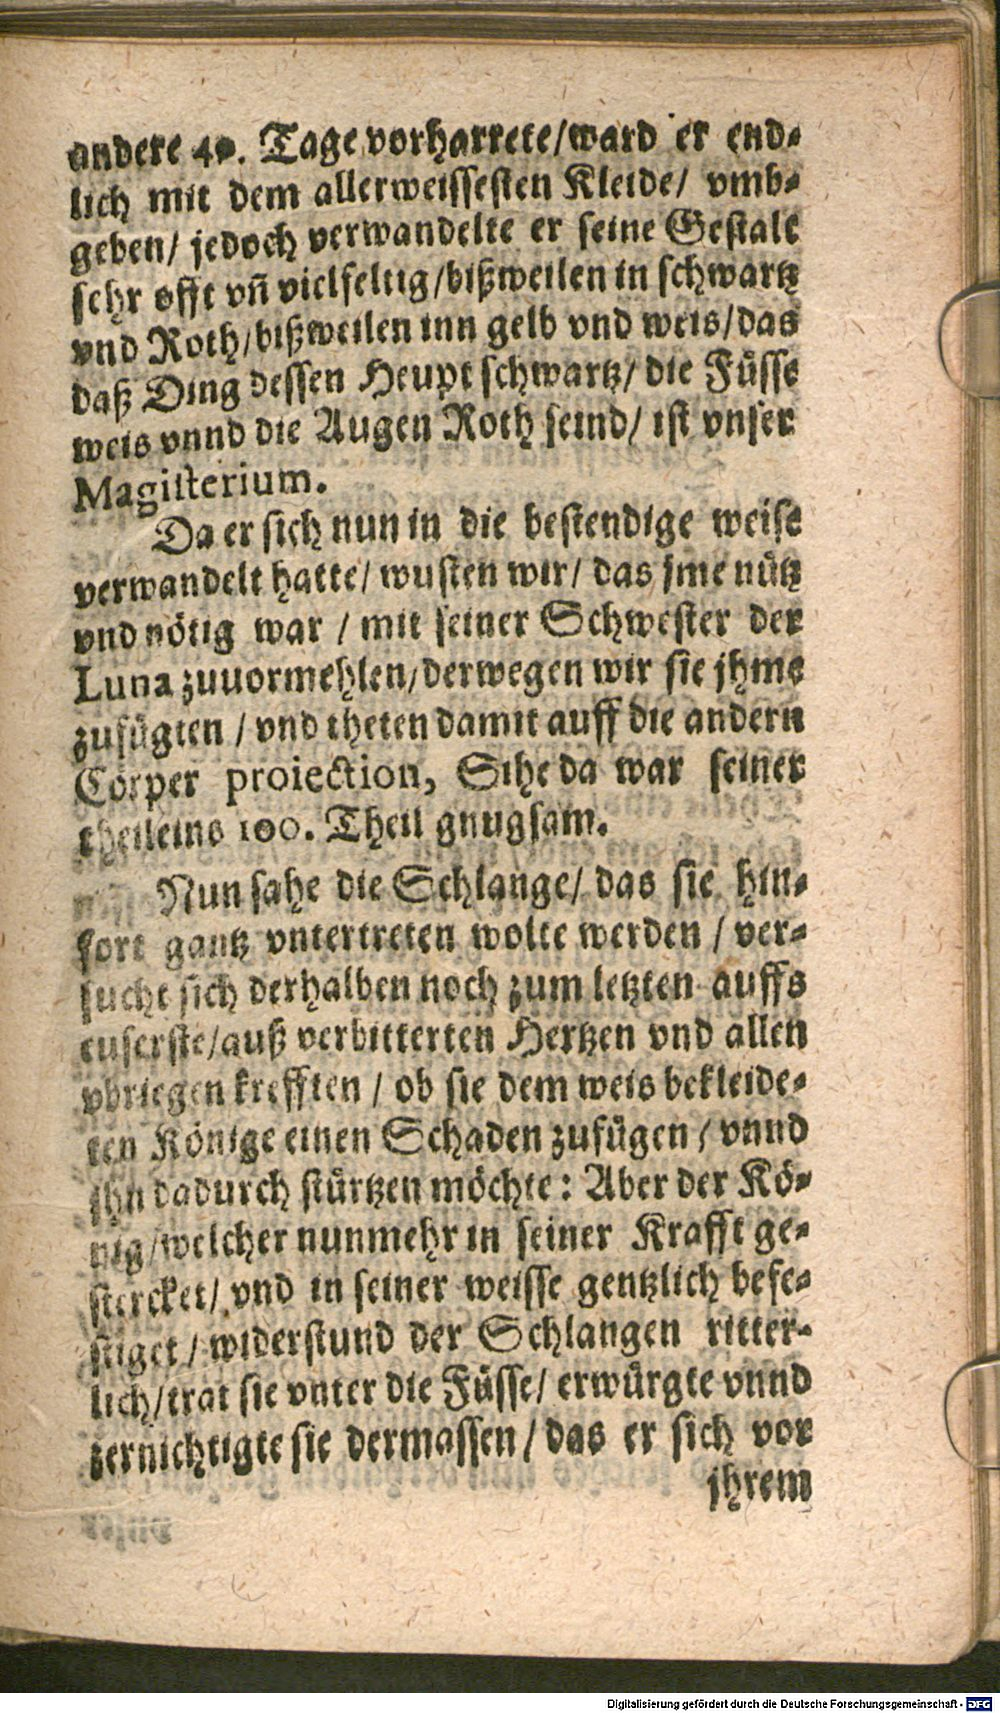 andere 40. Tage vorharrete/ward er end-
lich mit dem allerweissesten Kleide/ vmb-
geben/ jedoch verwandelte er seine Gestalt
sehr offt vñ vielfeltig/bißweilen in schwartz
vnd Roth/bißweilen inn gelb vnd weis/das
daß Ding dessen Heupt schwartz/ die Füsse
weis vnnd die Augen Roth seind/ ist vnser
Magisterium.
Da er sich nun in die bestendige weise
verwandelt hatte/ wusten wir/ das jme nütz
vnd nötig war / mit seiner Schwester der
Luna zuuormehlen/derwegen wir sie jhme
zufügten / vnd theten damit auff die andern
Cörper proiection, Sihe da war seiner
theileins 100. Theil gnugsam.
Nun sahe die Schlange/ das sie hin-
fort gantz vntertreten wolte werden / ver-
sucht sich derhalben noch zum letzten auffs
euserste/auß verbitterten Hertzen vnd allen
vbriegen krefften / ob sie dem weis bekleide-
ten Könige einen Schaden zufügen / vnnd
jhn dadurch stürtzen möchte: Aber der Kö-
nig/welcher nunmehr in seiner Krafft ge-
stercket/ vnd in seiner weisse gentzlich befe-
stiget / widerstund der Schlangen ritter-
lich/trat sie vnter die Füsse/ erwürgte vnnd
zernichtigte sie dermassen / das er sich vor
jhrem
Digitalisierung gefördert durch die Deutsche Forschungsgemeinschaft - DFG